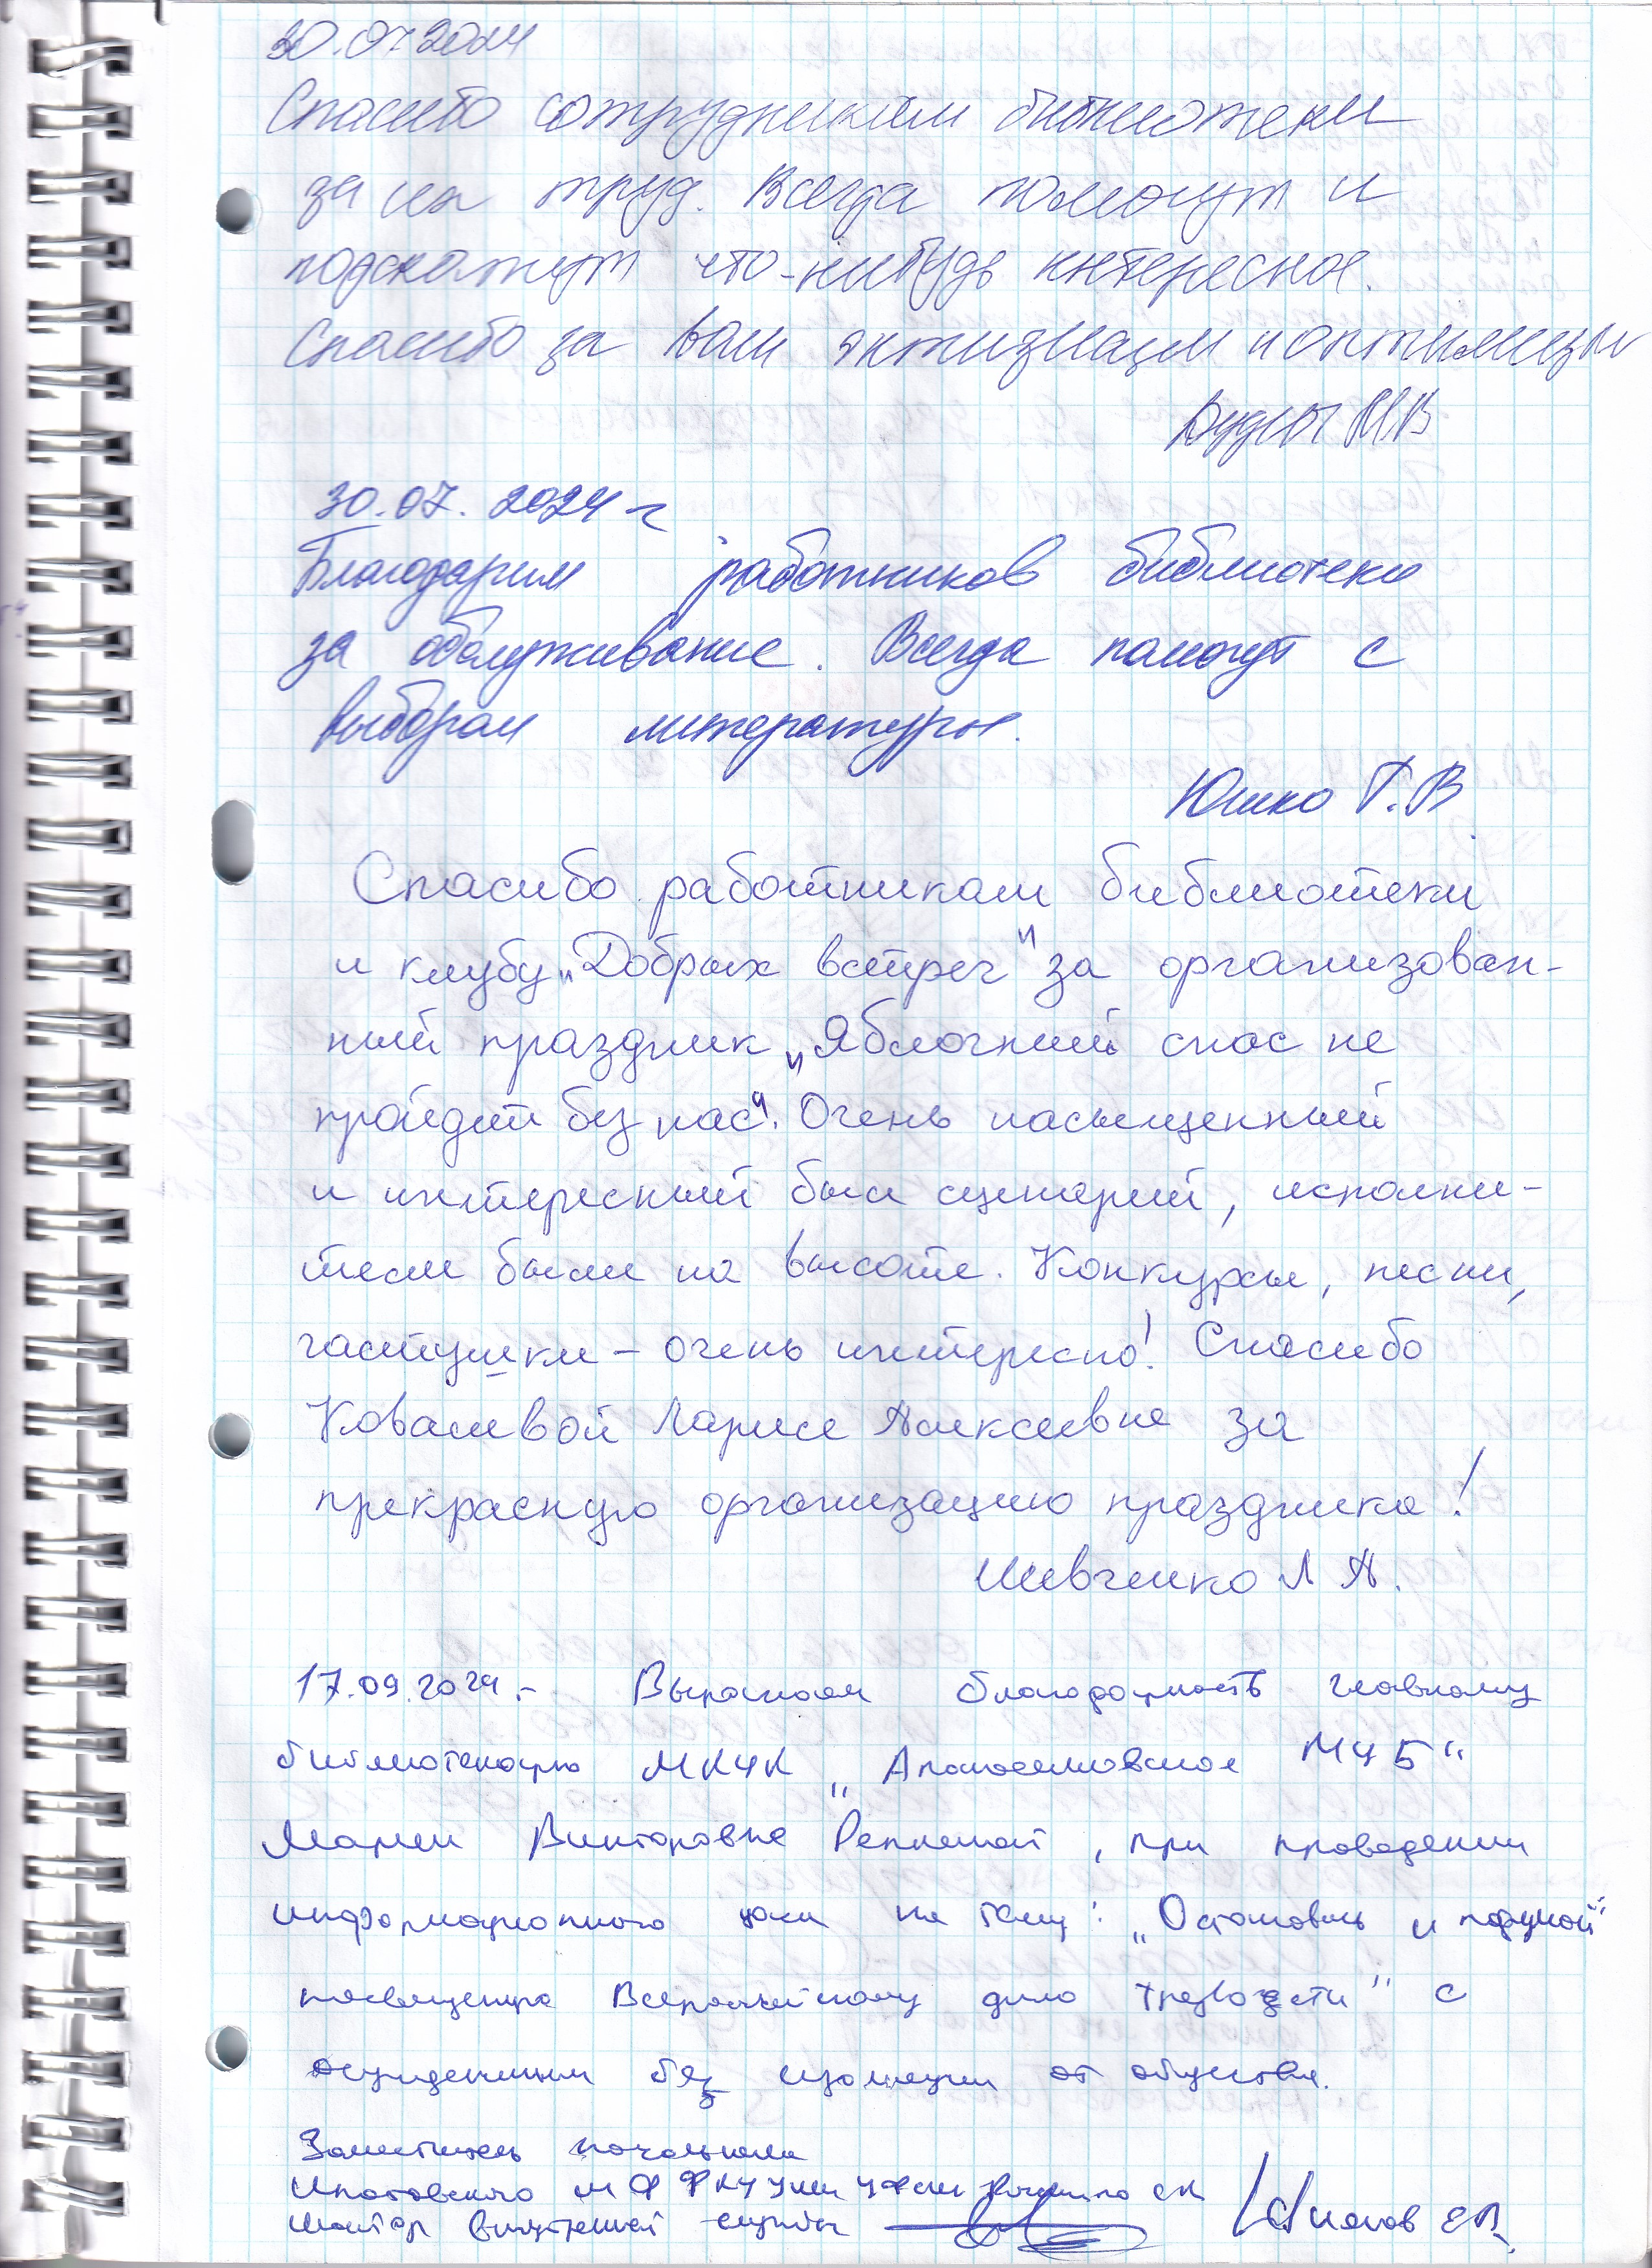 30.07 2024
Спасибо сотрудникам библиотеки
за их труд. Всегда помогут и
подскажут что-нибудь интересное.
Спасибо за ваш энтузиазм и оптимизм
30.07. 2024 г
Благодарим работников библиотеки
за обслуживание. Всегда помогут с
выбором литературы.
Юшко Г.В.
Спасибо работникам библиотеки
и клубу „Добрых встреч" за организован-
ный праздник „Яблочный спас не
пройдет без нас". Очень насыщенный
и интересный был сценарий, исполни-
тели были на высоте. Конкурсы, песни,
частушки – очень интересно! Спасибо
Ковалевой Ларисе Алексеевне за
прекрасную организацию праздника!
Шевченко Л А.
17.09.2024.- Выражаем благодарность главному
библиотекарю МКУК „Апанасенковская МЦБ"
Марии Викторовне , при проведении
информационного часа на тему: „Остановись и подумай"
посвященно Всероссийскому дню трезвости" с
осужденными без изоляции от общества.
Заместитель начальника
Ипатовского МФ ФКУ УИИ УФСИН России по СК
майор внутренней службы